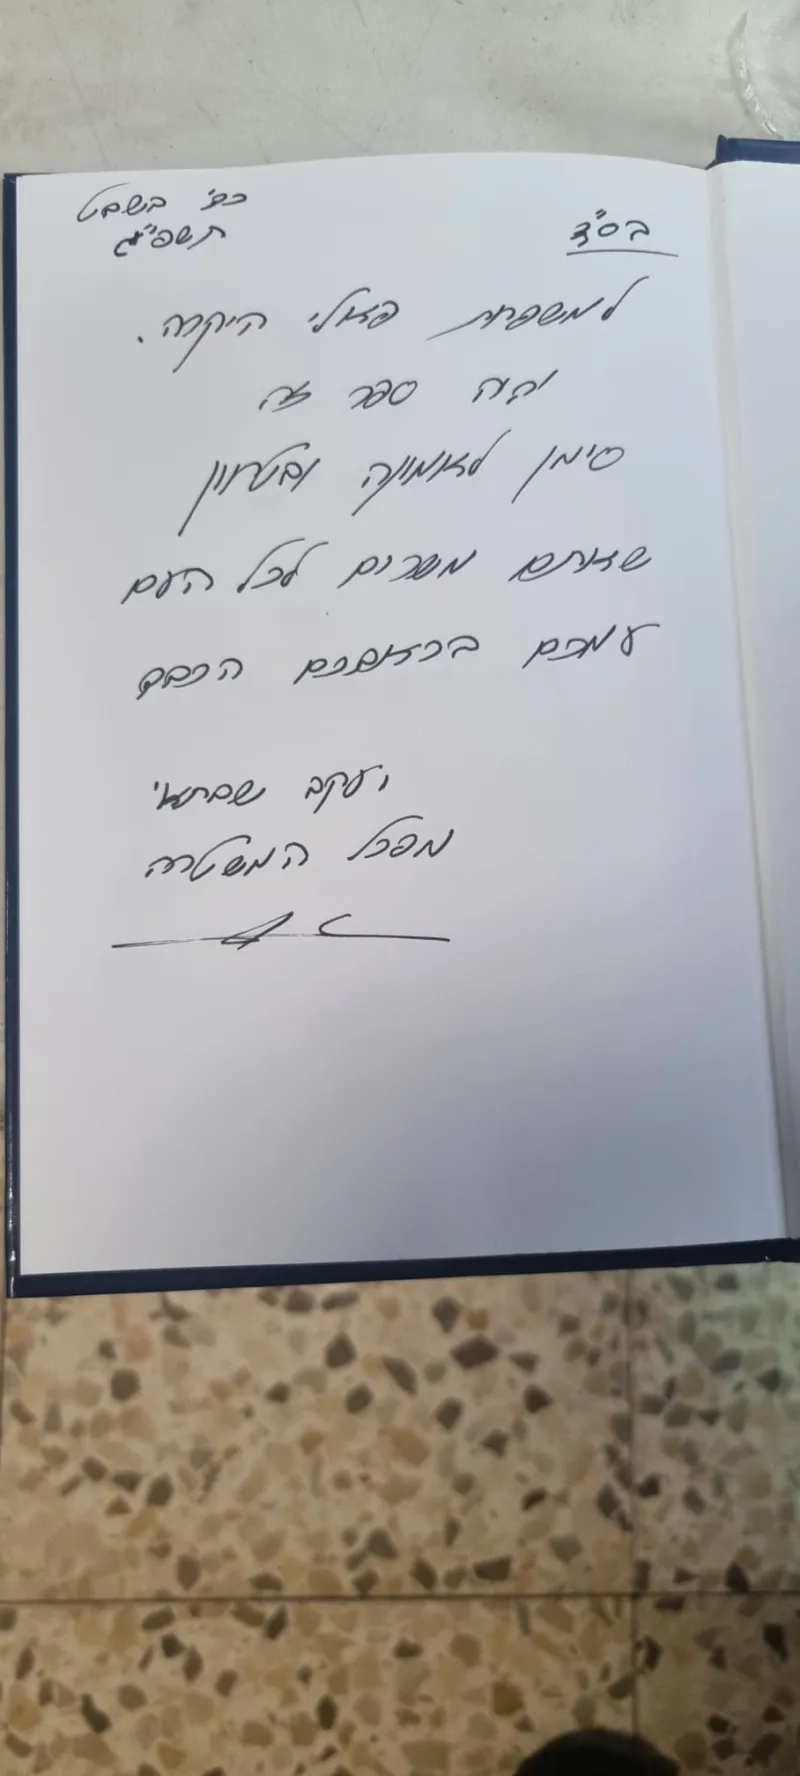 בס"ד
כט' בשבט
תשפ"ג
למשפחת פאלי היקרה.
יהיה ספר זה
סימן לאמונה ובטחון
שאתם משרים לכל העם
עמכם בכאבכם הכבד
יעקב שבתאי
מפכל המשטרה